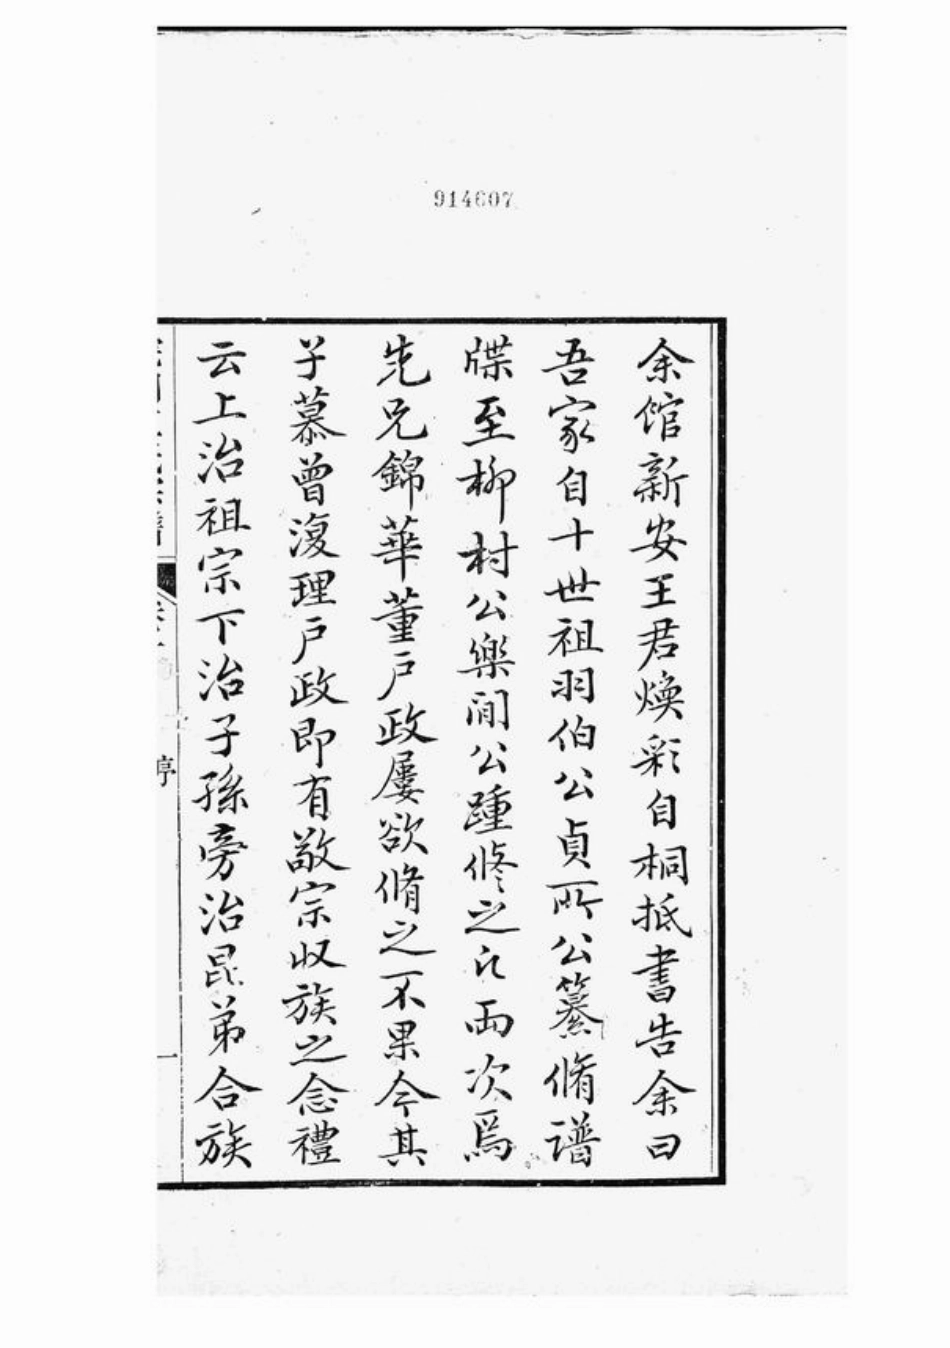 914607
余館新安王君煥彩自桐抵書告余曰
吾家自十世祖羽伯公貞所公纂脩譜
牒至柳村公樂閒公踵修之已兩次焉
先兄錦華董戶政屢欲脩之不果今其
子慕曾復理戶政即有敬宗收族之念禮
云上治祖宗下治子孫旁治昆弟合族
序
一